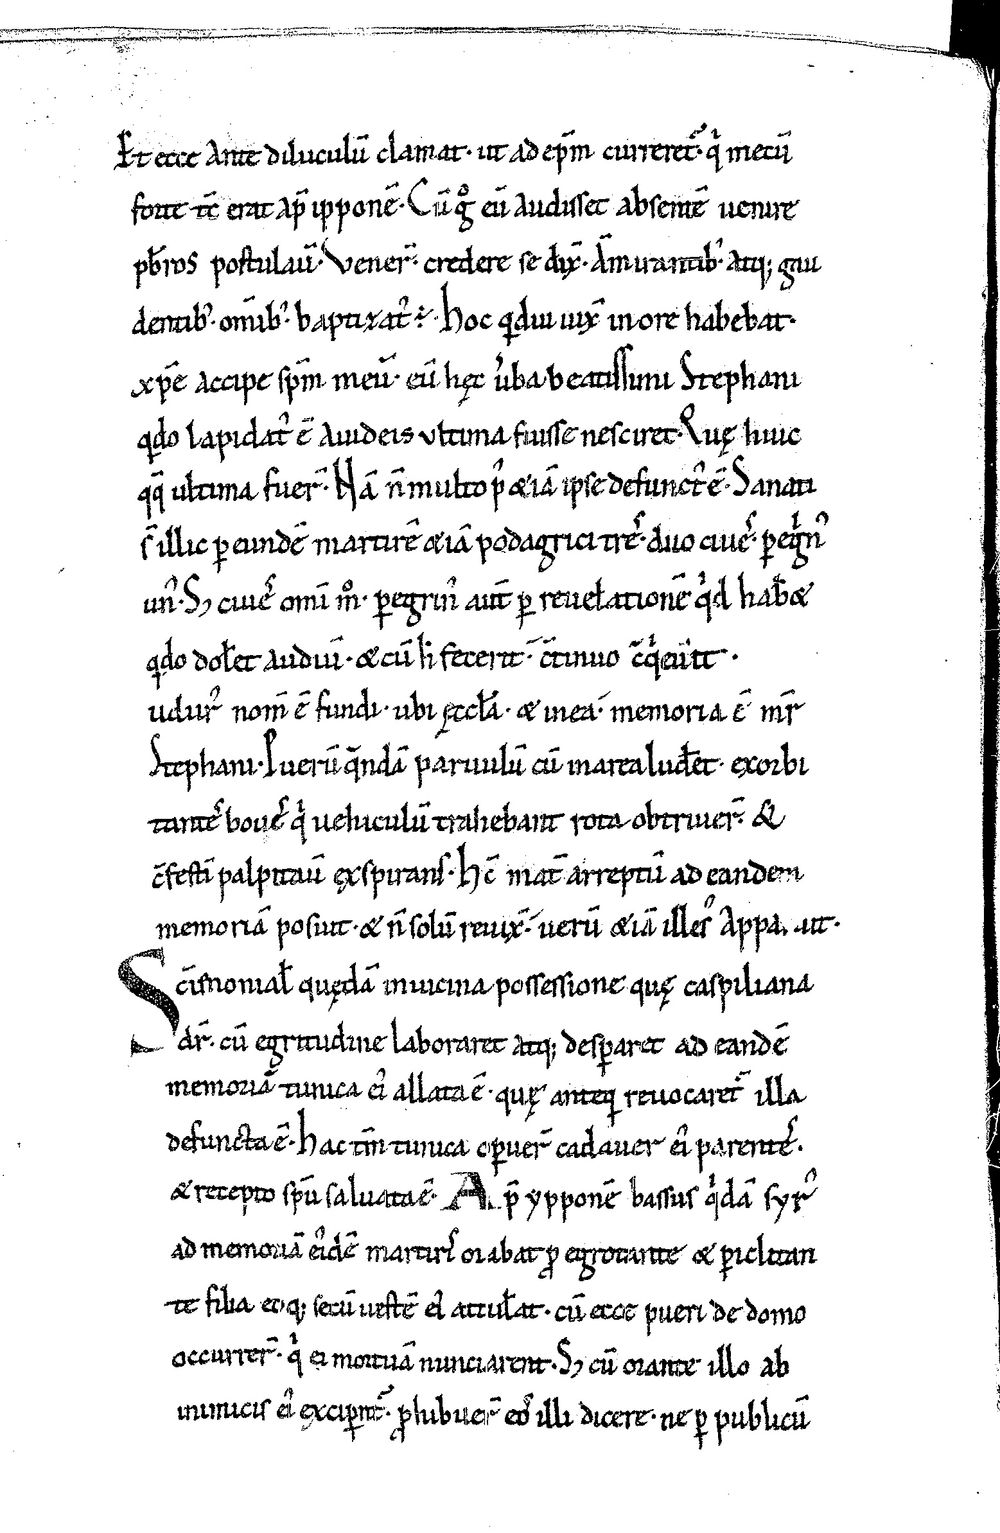 Et ecce ante diluculū clamat· ut ad ep̄m curreret᷑· qͥ mecū
forte tc̄ erat ap̄ ipponē· Cū gͦ eū audisset absentē uenire
pb̄ros postulauͥ· Vener̄· credere se dix̄· Am̄irantibꝰ atq; gau
dentibꝰ· om̄ibꝰ· baptizatꝰ ē· hoc qͣdiu uix̄ in ore habebat·
xp̄e accipe sp̄m meū· cū hęc ūba beatissimi Stephani
qͣdo lapidatꝰ ē a iudeis ultima fuisse nesciret· Quę huic
qq̄ ultima fuer̄· Nā n̄ multo p̄ꝰ &iā ipse defunctꝰ ē· Sanati
s̄ illic ꝑ eundē martirē &iā podagrici trē᷒· duo ciuē᷒· ꝑegͥnꝰ
unꝰ· S; ciuē᷒ om̄i mͦ· ꝑegrinꝰ aut̄ ꝑ reuelationē qͥd hab&
qͣdo dolet audiuͥ· & cū h̄ fecerit᷑ c̄tinuo c̄qͥeuit ·
udurꝰ nom̄ ē fundi· ubi ęccl̄a· & inea· memoria ē mr̄
Stephani· Puerū qͣndā paruulū cū in area luderet· exorbi
tantē᷒ bouē᷒ qͥ uehiculū trahebant rota obtriuer̄· &
c̄festī palpitauͥ exspirans· hc̄ mat̄ arreptū ad eandem
memoriā posuit· & n̄ solū reuix̄· uerū &iā illesꝰ appa uit·
Sc̄imonial̄ quędā in uicina possessione quę caspiliana
dr̄· cū egritudine laboraret atq; desꝑaret ad eandē
memoriā tunica eiꝰ allata ē· quę anteq̄ reuocaret᷑ illa
defuncta ē· hac tm̄ tunica oꝑuer̄ cadauer eiꝰ parentē᷒·
& recepto sp̄u saluata ē· Ap̄ ypponē bassus qͥdā syrꝰ
ad memoriā eiꝰdē martiris orabat ꝓ egrotante & ꝑiclitan
te filia eoq; secū uestē eiꝰ attulerat· cū ecce pueri de domo
occurrer̄· qͥ ei mortuā nunciarent· S; cū orante illo ab
inimicis eiꝰ exciꝑent᷑· ꝓhibuer̄ eos illi dicere· ne ꝑ publicū